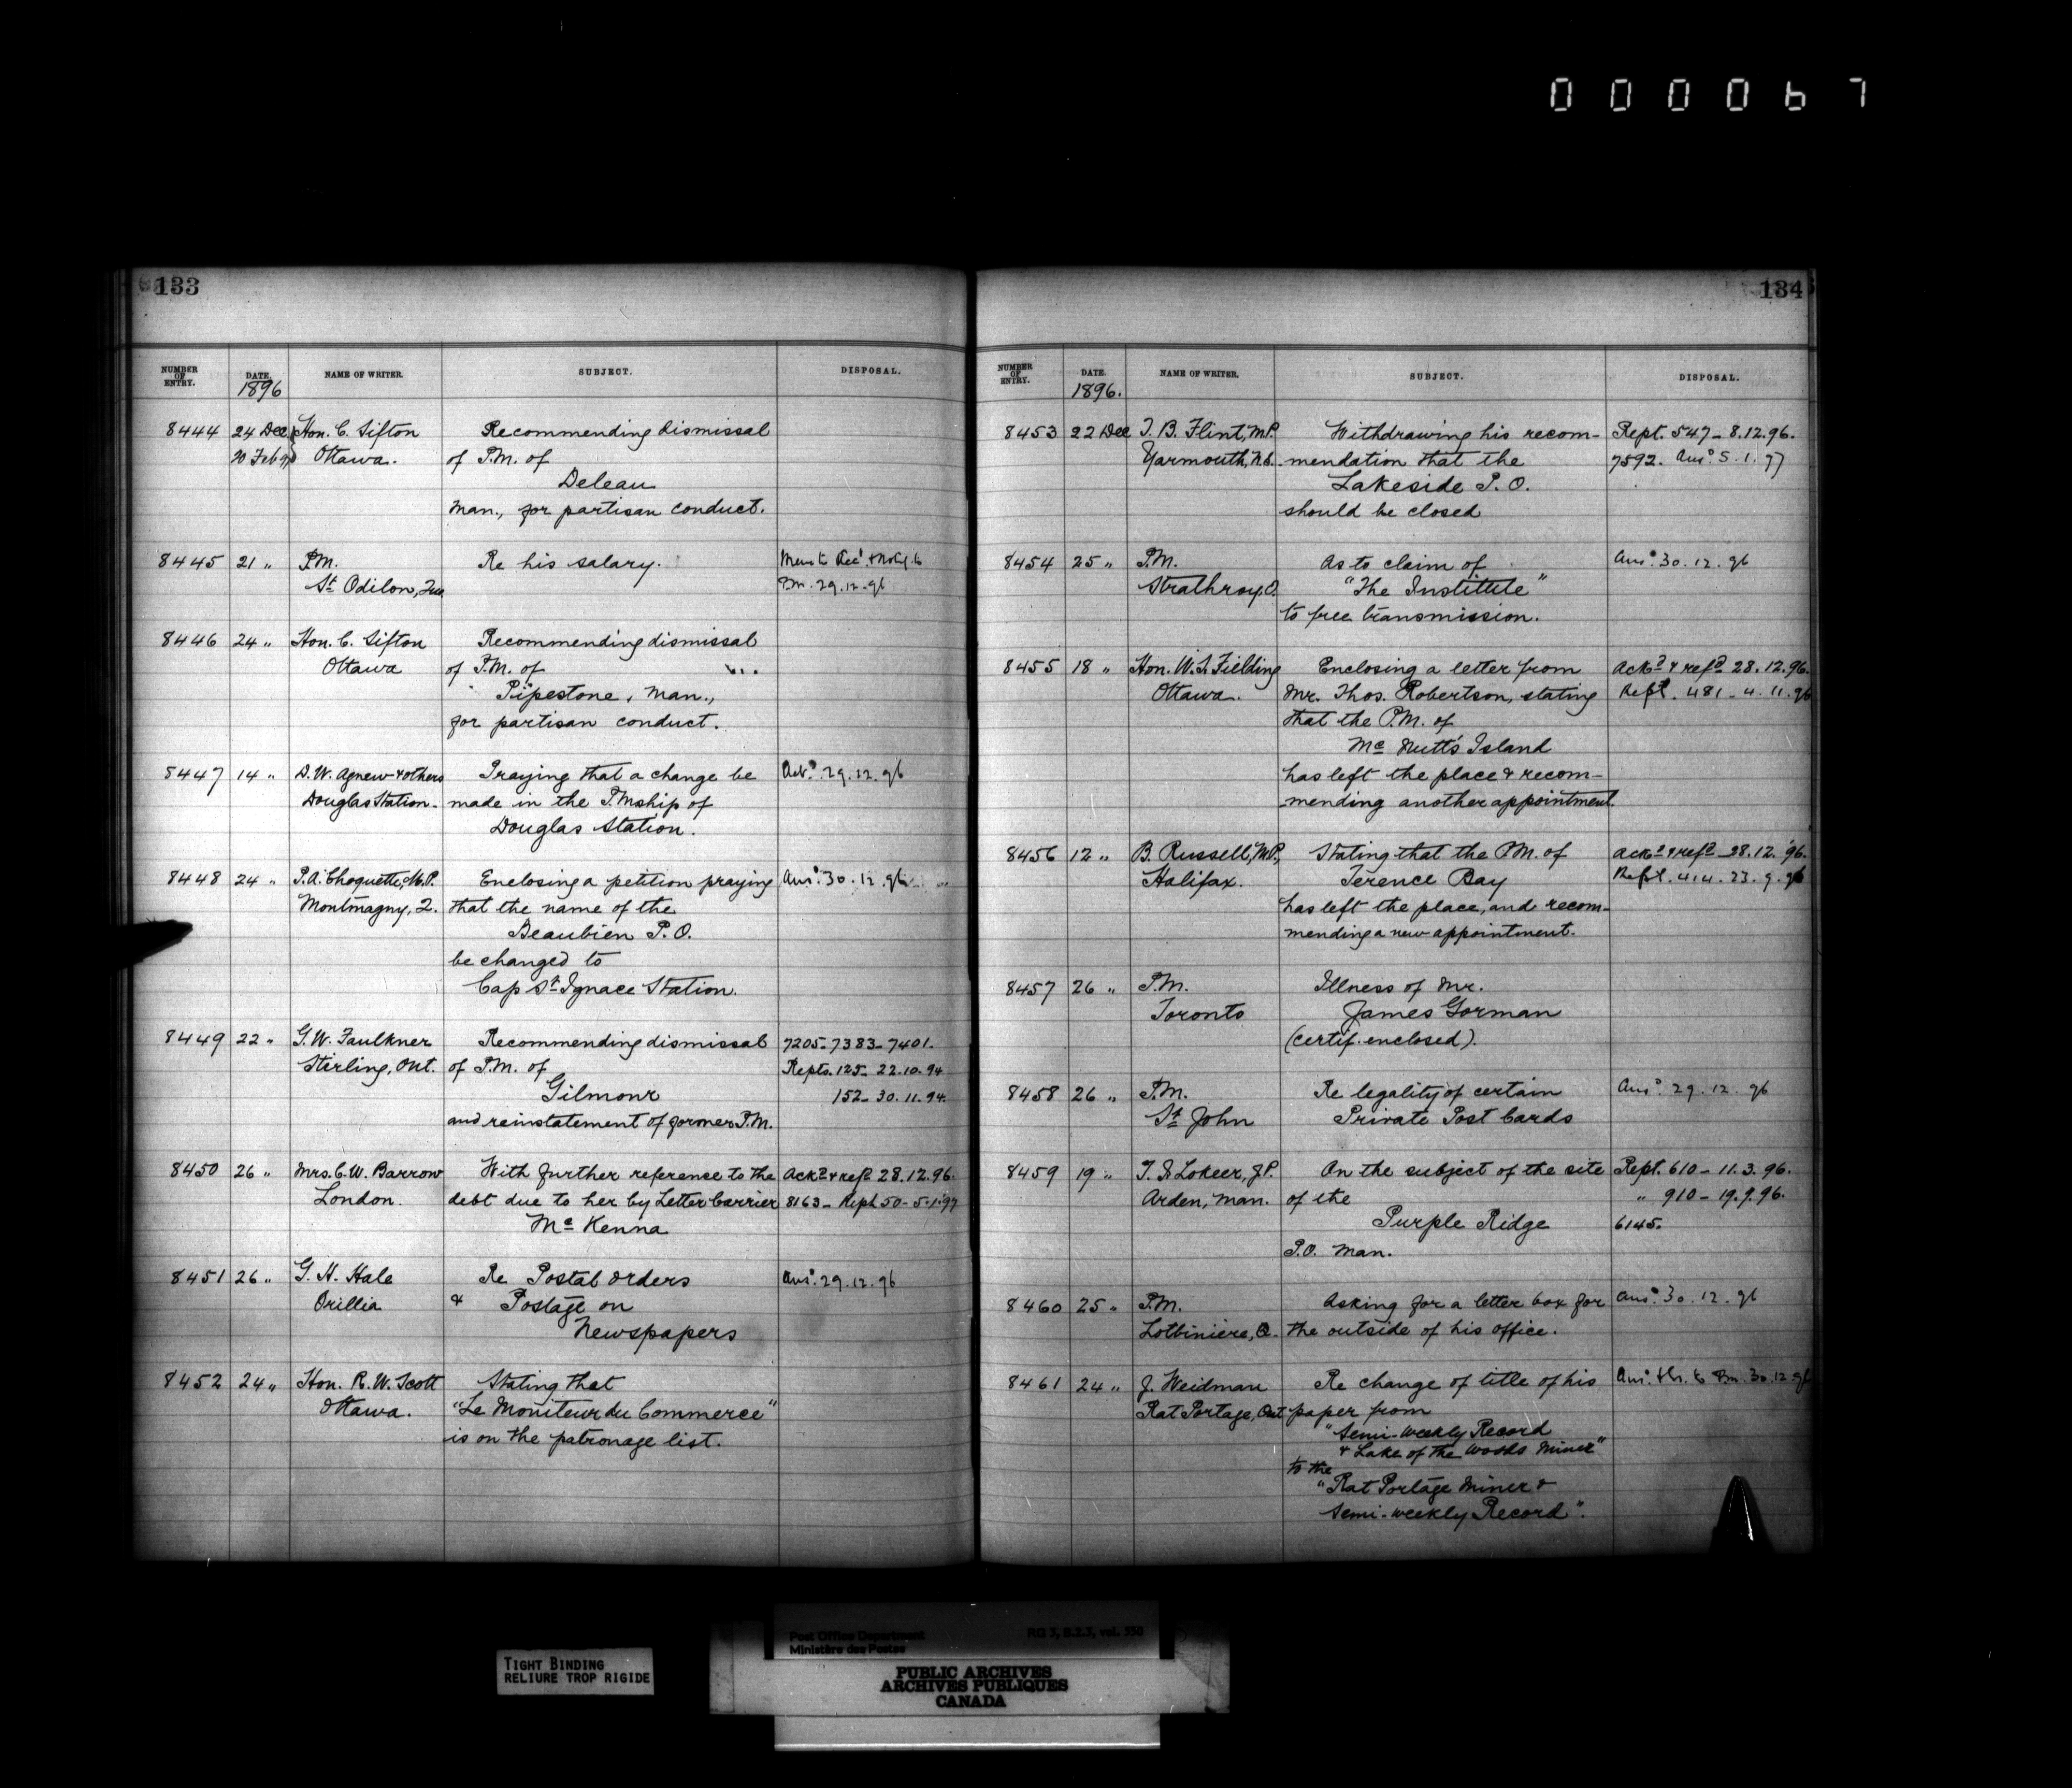 000067
133
NUMBER OF ENTRY. DATE. NAME OF WRITER. SUBJECT. DISPOSAL.
1896
8444 24 Dec Hon. C. Sifton Recommending dismissal
20 Feb 97 Ottawa. of P.M. of
Deleau
Man., for partisan conduct.
8445 21 " P.M. Re his salary.
St Odilon, Que P.M. 29.12.96
8446 24 " Hon. C. Sifton Recommending dismissal
Ottawa of P.M. of
Pipestone, Man.,
for partisan conduct.
8447 14 " D. W. Agnew & others Praying that a change be Ack'd 29.12.96
Douglas Station. made in the P.Mship of
Douglas Station.
8448 24 " P. A. Choquette, M.P. Enclosing a petition praying Ans'd 30.12.96
Montmagny, Q. that the name of the
Beaubien P.O.
be changed to
Cap St Ignace Station.
8449 22 " G. W. Faulkner Recommending dismissal 7205-7383-7401.
Stirling, Ont. of P.M. of Repts. 125- 22.10.94
Gilmour 152- 30.11.94.
and reinstatement of former P.M.
8450 26 " Mrs. C. W. Barrow With further reference to the Ackd & refd 28.12.96.
London. debt due to her by Letter Carrier 8163- Rept 50- 5.1.97
Mc Kenna
8451 26 " G. H. Hale Re Postal orders Ans'd 29.12.96
Orillia & Postage on
Newspapers
8452 24 " Hon. R. W. Scott Stating that
Ottawa. "Le Moniteur du Commerce"
is on the patronage list.
134
NUMBER OF ENTRY. DATE. NAME OF WRITER. SUBJECT. DISPOSAL.
1896.
8453 22 Dec T. B. Flint, M.P. Withdrawing his recom- Rept. 547- 8.12.96.
Yarmouth, N.S. mendation that the 7592. Ans'd 5.1.97
Lakeside P.O.
should be closed
8454 25 " P.M. As to claim of Ans'd 30.12.96
Strathroy, O. "The Institute"
to free transmission.
8455 18 " Hon. W. S. Fielding Enclosing a letter from Ackd & refd 28.12.96.
Ottawa. Mr. Thos. Robertson, stating Rept. 481- 4.11.96
that the P.M. of
Mc Nutt's Island
has left the place & recom-
mending another appointment.
8456 12 " B. Russell, M.P., Stating that the P.M. of Ackd & refd 28.12.96.
Halifax. Terence Bay Rept. 414. 23.9.96
has left the place, and recom-
mending a new appointment.
8457 26 " P.M. Illness of Mr.
Toronto James Gorman
(certif. enclosed).
8458 26 " P.M. Re legality of certain Ans'd 29.12.96
St John Private Post Cards
8459 19 " T. S. Lokeer, J.P. On the subject of the site Rept. 610- 11.3.96.
Arden, Man. of the " 910- 19.9.96.
Purple Ridge 6145.
P.O. Man.
8460 25 " P.M. Asking for a letter box for Ans'd 30.12.96
Lotbiniere, Q. the outside of his office.
8461 24 " J. Weidman Re change of title of his
Rat Portage, Ont paper from
"Semi-weekly Record
& Lake of the Woods Miner"
to the
"Rat Portage Miner &
Semi-weekly Record".
TIGHT BINDING
RELIURE TROP RIGIDE
Post Office Department RG 3, B.2.3, vol. 350
Ministère des Postes
PUBLIC ARCHIVES
ARCHIVES PUBLIQUES
CANADA